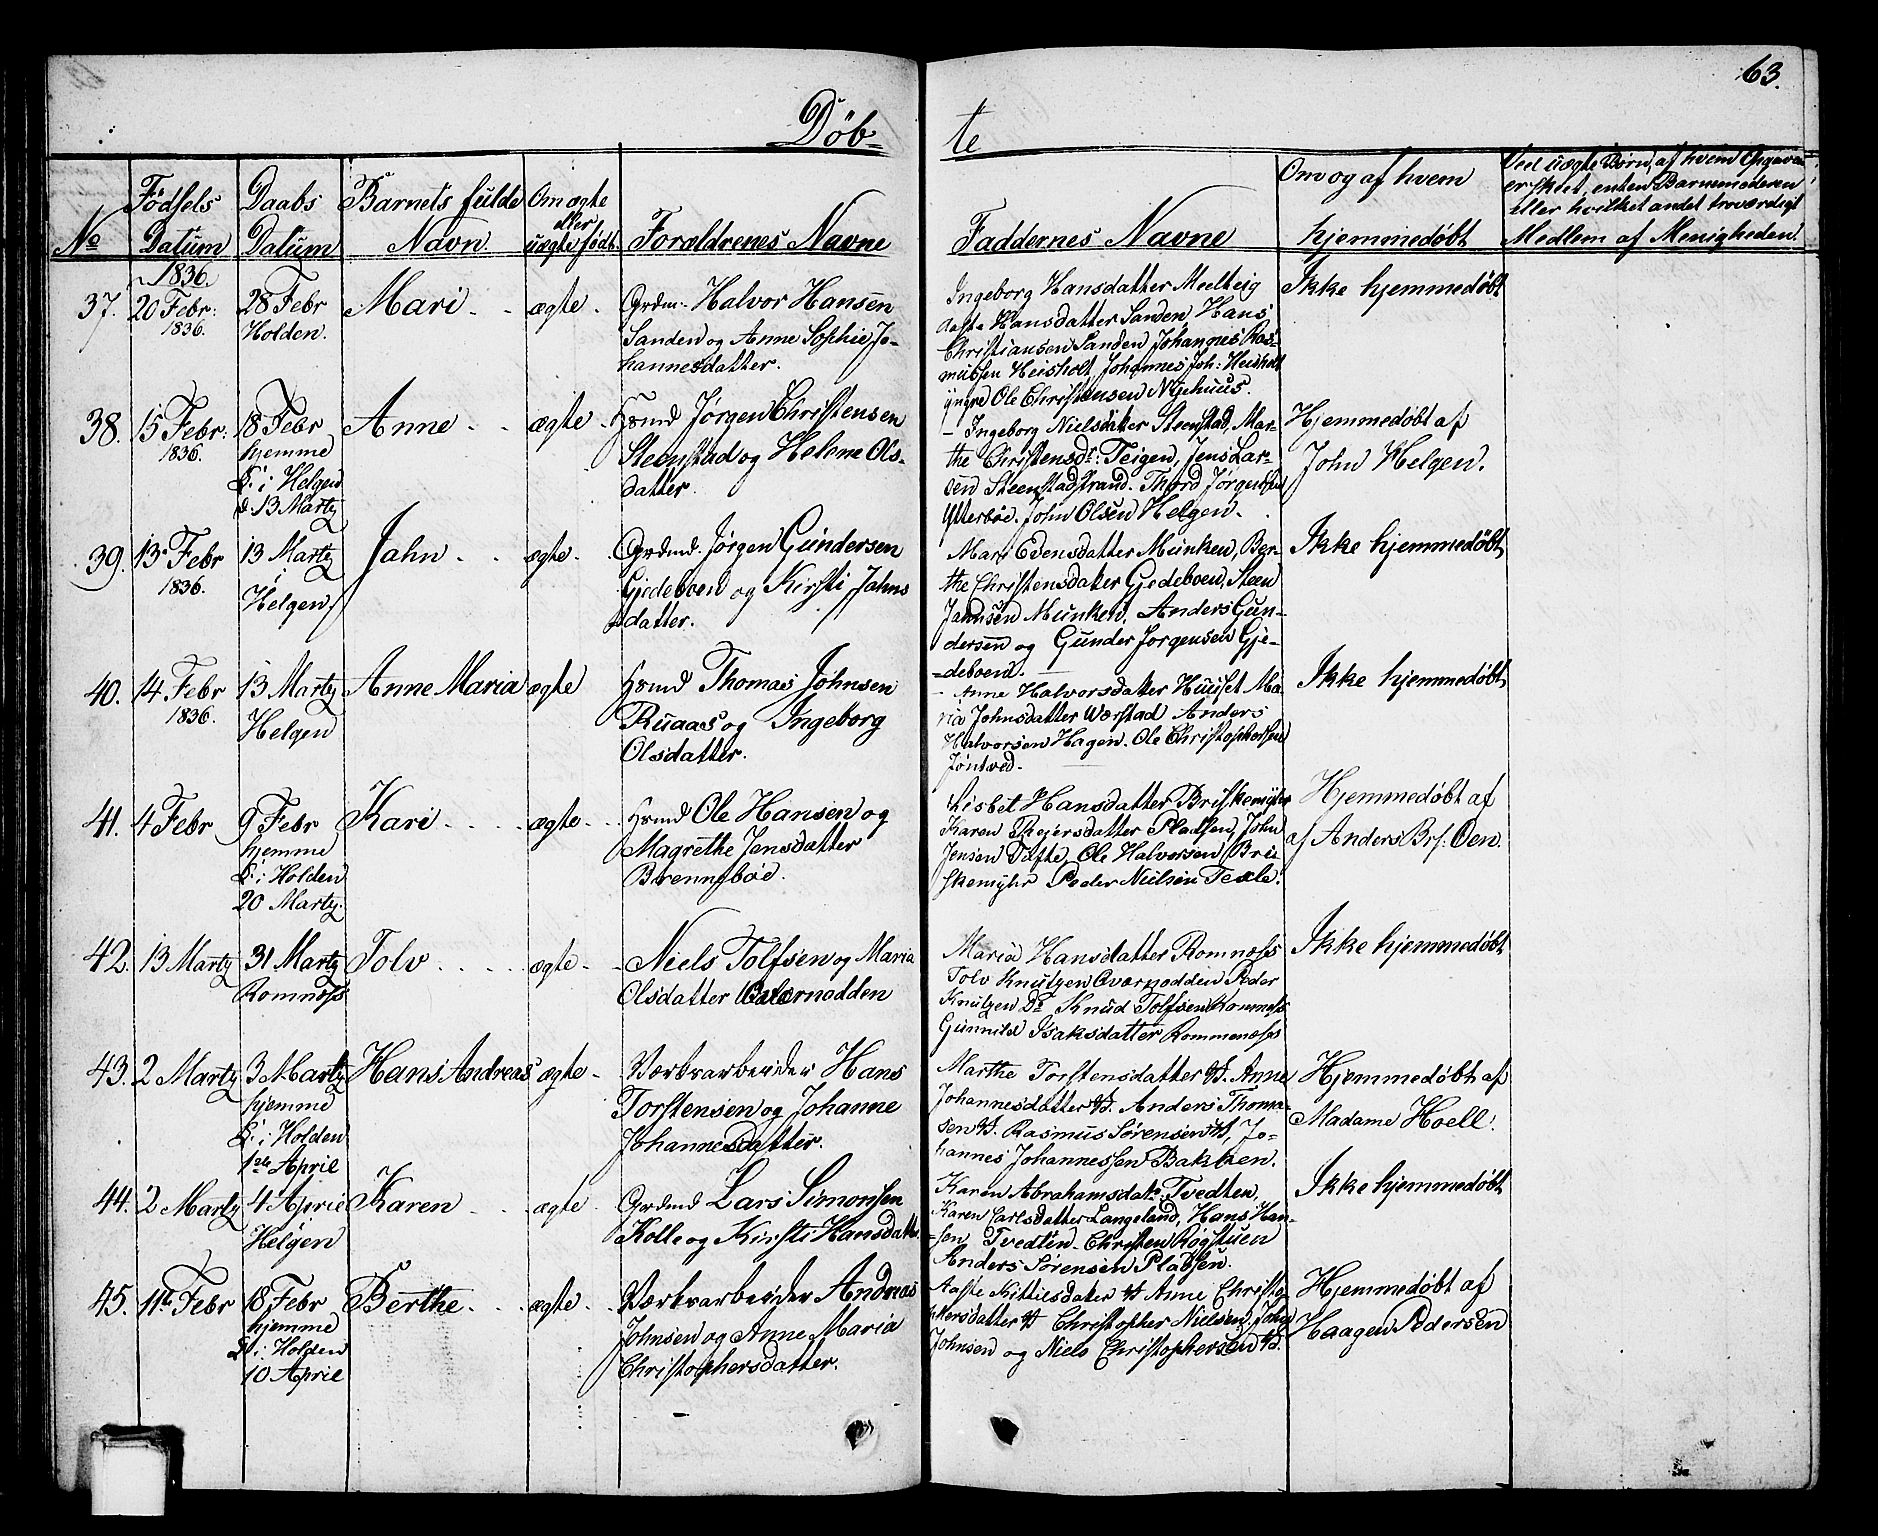 63.
Døb-
te
No
Fødsels
Datum
Daabs
Datum
Barnets fulde
Navn.
Om ægte
eller
uægte født.
Forældrenes Navne
Faddernes Navne
Om og af hvem
hjemmedøbt
Ved uægte Børn, af hvem Opgaven
er skeet, enten Barnemoderen
eller hvilket andet troværdigt
Medlem af Menigheden.
1836.
37.
20 Febr:
1836.
28 Febr
Holden.
Mari
ægte
Grdm: Halvor Hansen
Sanden og Anne Sophie Jo-
hannesdatter.
Ingeborg Hansdatter Meelteig
Aaste Hansdatter Sanden Hans
Christiansen Sanden Johannes Ras-
mussen Heisholt, Johannes Joh: Heisholt
yngre Ole Christensen Nyehuus.
Ikke hjemmedøbt
38.
15 Febr:
1836.
18 Febr
hjemme
i Helgen
d. 13 Marty
Anne
ægte
Hsmd Jørgen Christensen
Steenstad og Helene Ols-
datter.
Ingeborg Nielsdatter Steenstad, Mar-
the Christensdr: Teigen, Jens Lar-
sen Steenstadstrand. Thord Jørgensen
Ytterbøe. John Olsen Helgen.
Hjemmedøbt af
John Helgen.
39.
13 Febr
1836.
13 Marty
i
Helgen
Jahn
ægte
Grdmd. Jørgen Gundersen
Gjedeboen og Kirsti Jahns
datter.
Mari Edensdatter Munken, Ber-
the Christensdatter Gjedeboen, Steen
Jahnsen Munken, Anders Gun-
dersen og Gunder Jørgensen Gje-
deboen.
Ikke hjemmedøbt
40.
14 Febr
1836.
13 Marty
Helgen
Anne Maria
ægte
Hsmd Thomas Johnsen
Ruaas og Ingeborg
Olsdatter.
Anne Halvorsdatter Huuset Ma-
ria Johnsdatter Wærstad Anders
Halvorsen Hagen. Ole Christophersen
Jøntved.
Ikke hjemmedøbt
41.
4 Febr
9 Febr
hjemme
i Holden
20 Marty.
Kari
ægte
Hsmd Ole Hansen og
Magrethe Jensdatter
Brennebøe.
Lisbet Hansdatter Briskemyhr
Karen Rejersdatter Pladsen, John
Jensen Tufte Ole Halvorsen Bris
skemyhr Peder Nielsen Texle.
Hjemmedøbt af
af Anders Brs: Øen.
42.
13 Marty
31 Marty
Romnæss
Tolv
ægte
Niels Tolfsen og Maria
Olsdatter Oværnodden
Maria Hansdatter Romnæss
Tolv Knutzen Oværnodden Peder
Knutzen Do Knud Tolfsen Romnæss
Gunnild Isaksdatter Rommenæss
Ikke hjemmedøbt
43.
2 Marty
3 Marty
hjemme
i Holden
1ste April
Hans Andreas
ægte
Værkvarbeider Hans
Torstensen og Johanne
Johannesdatter.
Marthe Torstensdatter V. Anne
Johannesdatter V. Anders Thoma-
sen V. Rasmus Sørensen V, Jo-
hannes Johannessen Bakken.
Hjemmedøbt af
Madame Hoell.
44.
2 Marty
4 April
Helgen
Karen
ægte
Grdmd Lars Simonsen
Kolle og Kirsti Hansdatt.
Karen Abrahamsdatr Tvedten,
Karen Carlsdatter Langeland, Hans Han-
sen Tvedten Christen Røgstuen
Anders Sørensen Pladsen.
Ikke hjemmedøbt
45.
11te Febr
18 Febr
hjemme
i Holden
10 April
Berthe
ægte
Værkvarbeider Andreas
Johnsen og Anne Maria
Christophersdatter.
Aaste Kittilsdatter V Anne Christo
phersdatter V Christopher Nielsen, John
Johnsen og Niels Christophersen V.
Hjemmedøbt af
Haagen Pedersen